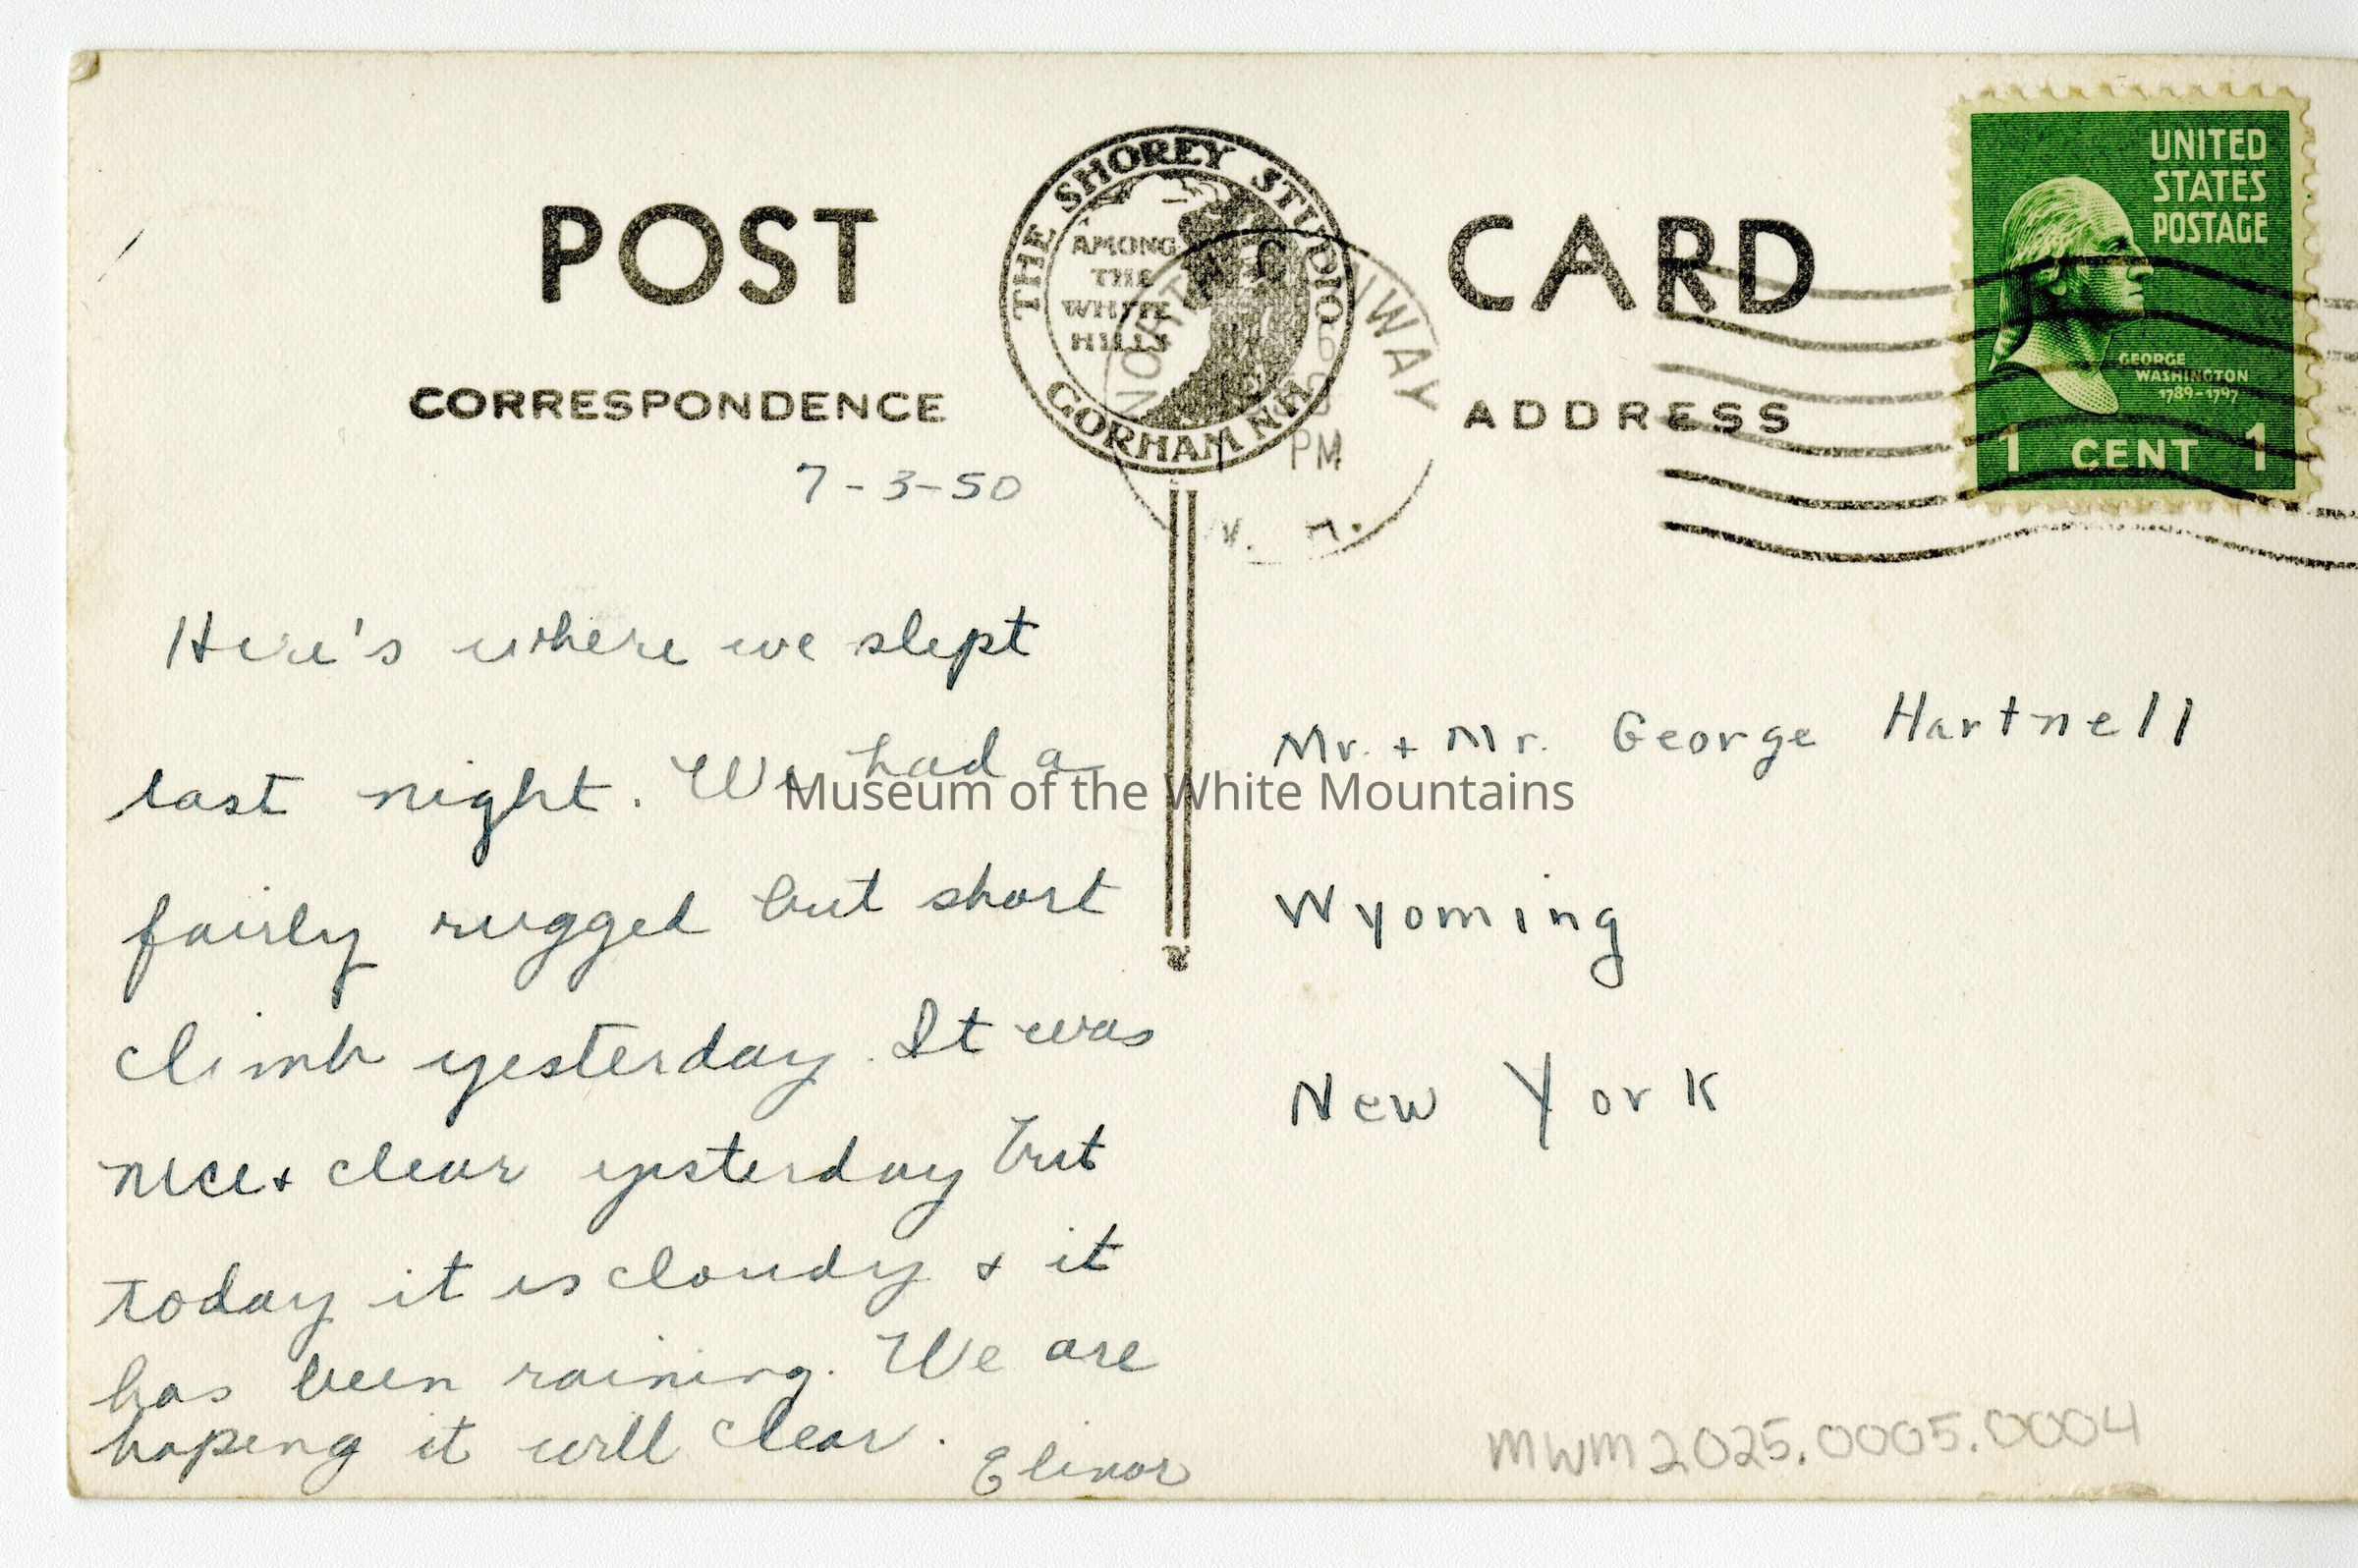 POST CARD
THE SHOREY STUDIO
AMONG
THE
WHITE
HILLS
GORHAM N.H.
NORTH CONWAY
PM
N. H.
UNITED
STATES
POSTAGE
GEORGE
WASHINGTON
1789-1797
1 CENT 1
CORRESPONDENCE
ADDRESS
7-3-50
Here's where we slept
last night. We had a
fairly rugged but short
climb yesterday. It was
nice & clear yesterday but
today it is cloudy & it
has been raining. We are
hoping it will clear.
Elinor
Mr. + Mr. George Hartnell
Wyoming
New York
Museum of the White Mountains
MWM2025.0005.0004